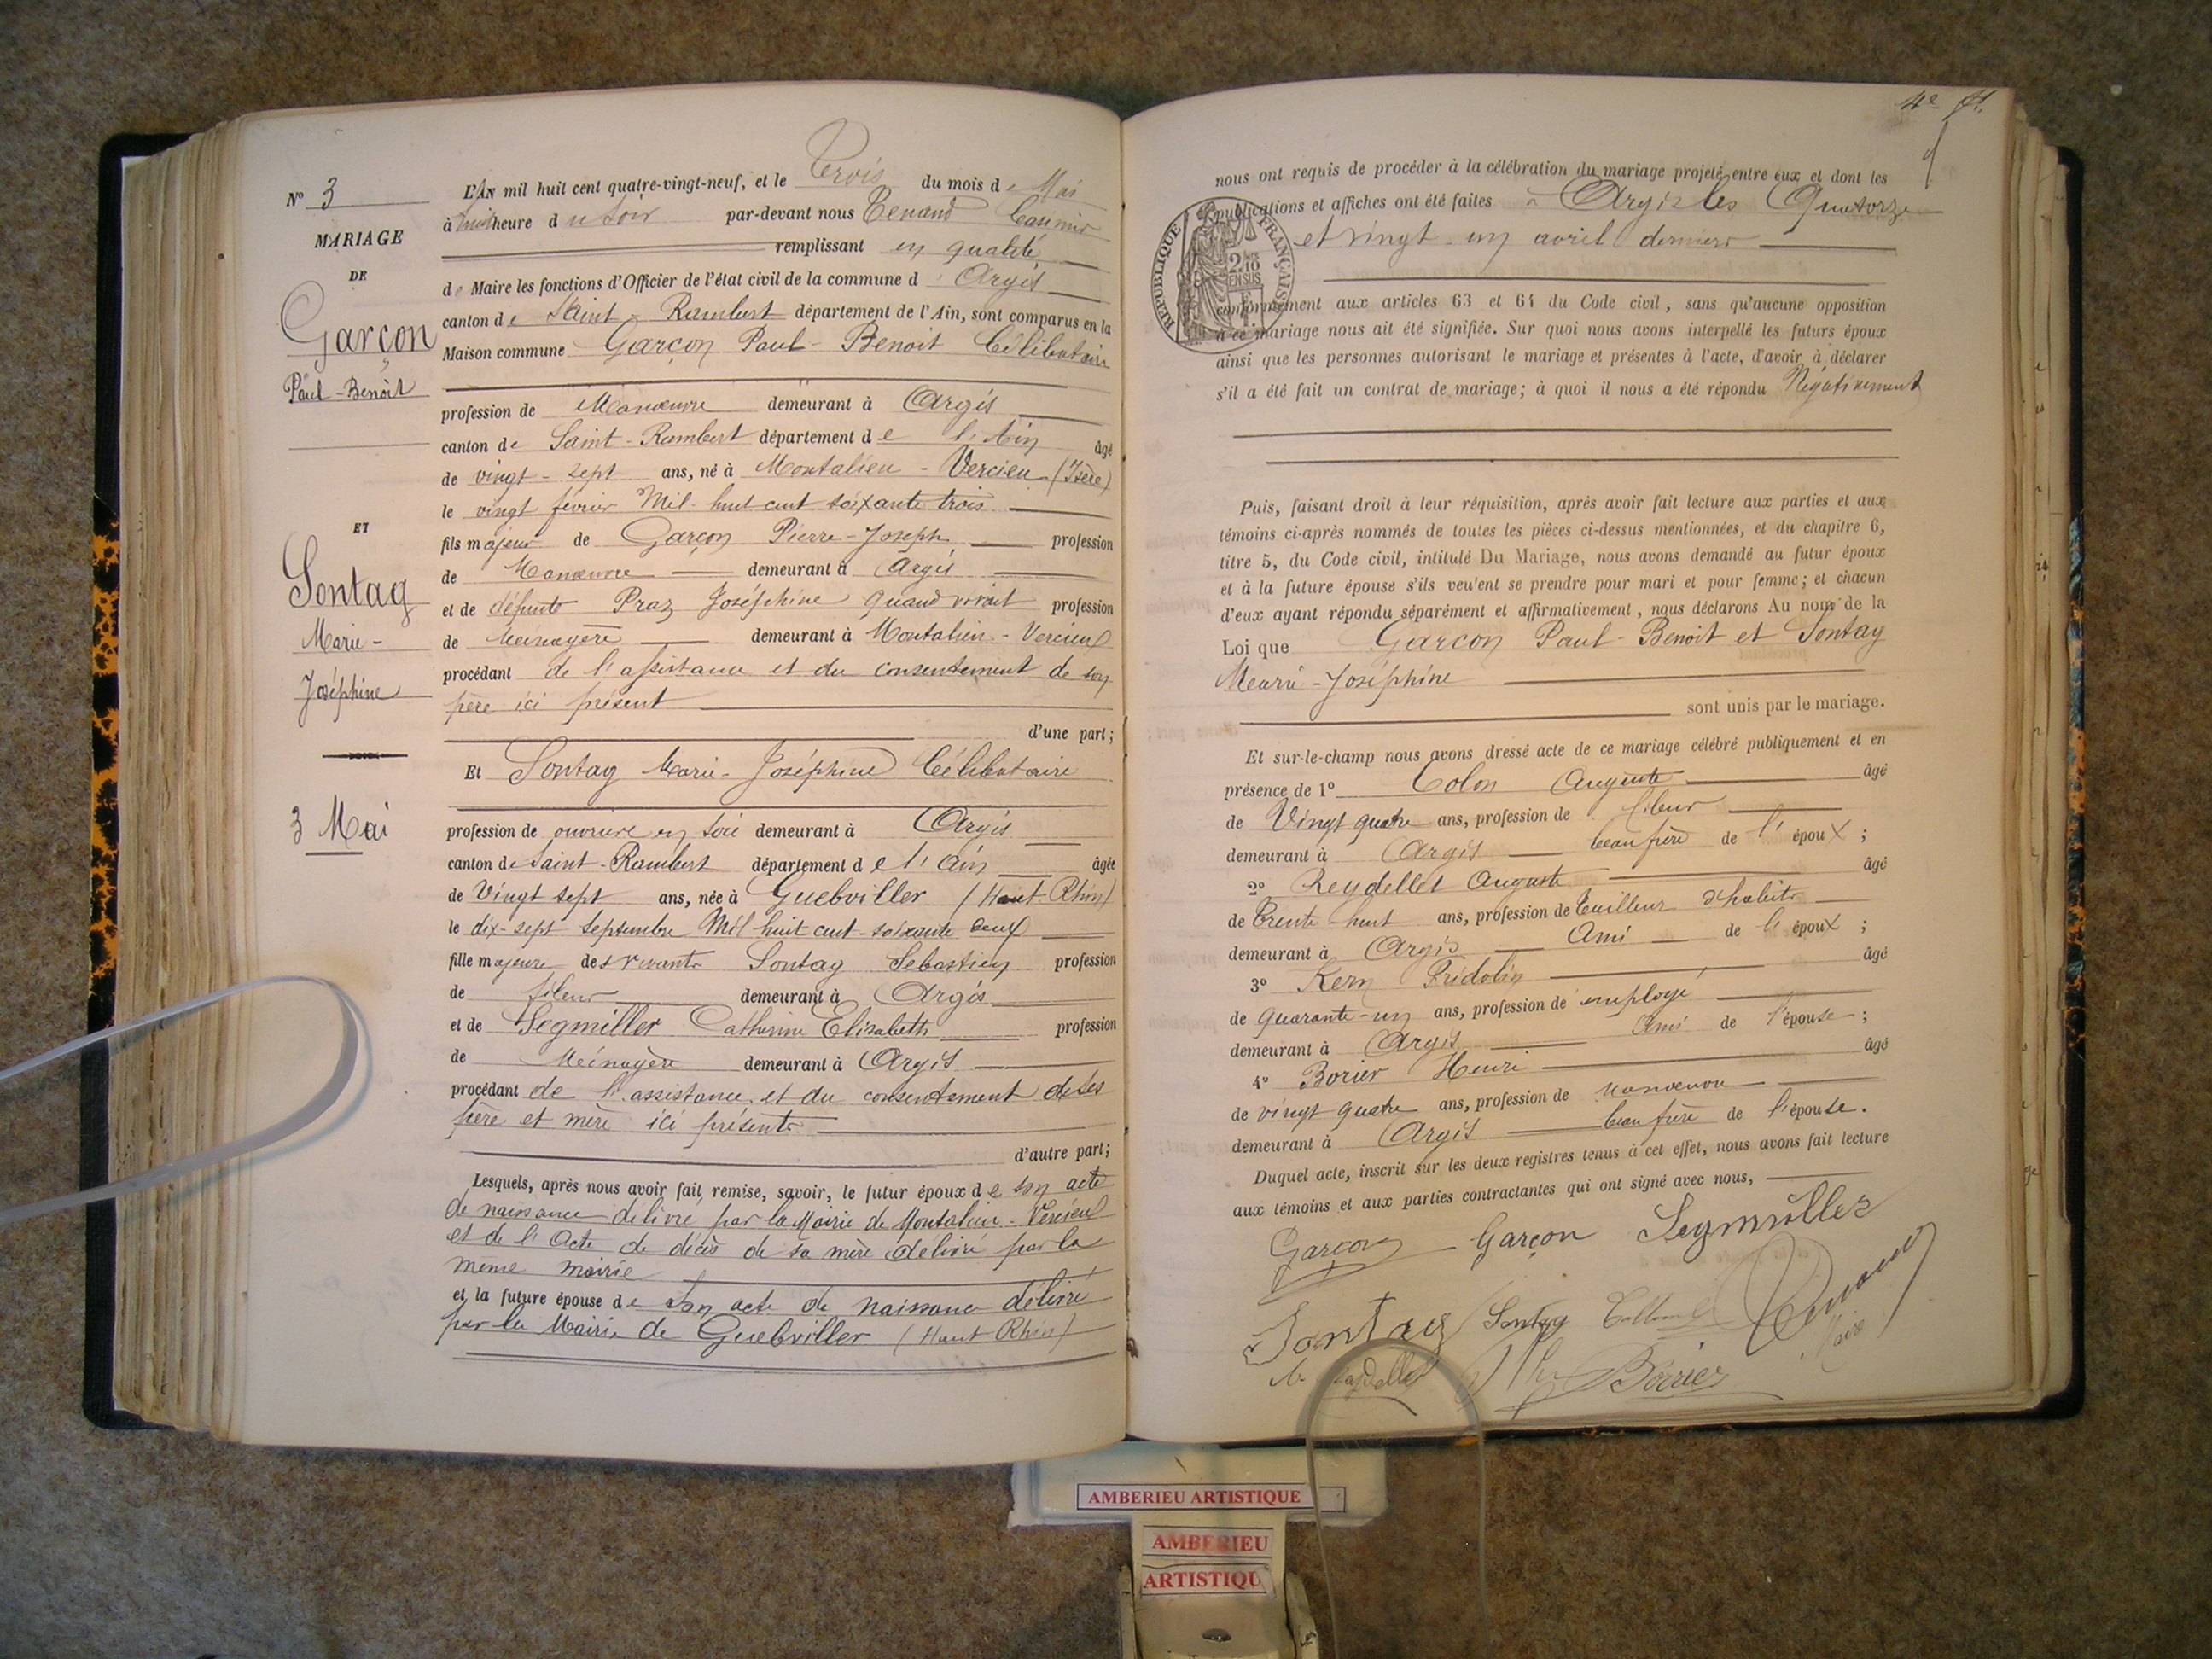 N° 3
MARIAGE
DE
Garçon
Paul-Benoit
ET
Sontag
Marie-
Joséphine
3 Mai
L'AN mil huit cent quatre-vingt-neuf, et le Trois du mois de Mai
à huit heure du soir par-devant nous Tenand Casimir
remplissant en qualité
de Maire les fonctions d'Officier de l'état civil de la commune d'Argis
canton de Saint-Rambert département de l'Ain, sont comparus en la
Maison commune Garçon Paul-Benoit Célibataire
profession de Manœuvre demeurant à Argis
canton de Saint-Rambert département de l'Ain âgé
de vingt-sept ans, né à Montalieu-Vercieu (Isère)
le vingt février Mil-huit cent soixante trois
fils majeur de Garçon Pierre-Joseph profession
de Manœuvre demeurant à Argis
et de défunte Praz Joséphine quand vivait profession
de Ménagère demeurant à Montalieu-Vercieu
procédant de l'assistance et du consentement de son
père ici présent
d'une part;
Et Sontag Marie-Joséphine Célibataire
profession de ouvrière en soie demeurant à Argis
canton de Saint-Rambert département de l'Ain âgée
de Vingt sept ans, née à Guebviller (Haut-Rhin)
le dix-sept septembre Mil huit cent-soixante deux
fille majeure des vivants Sontag Sebastien profession
de fileur demeurant à Argis
et de Segmiller Catherine Elisabeth profession
de Ménagère demeurant à Argis
procédant de l'assistance et du consentement de ses
père et mère ici présents
d'autre part;
Lesquels, après nous avoir fait remise, savoir, le futur époux de son acte
de naissance délivré par la Mairie de Montalieu-Vercieu
et de l'acte de décès de sa mère délivré par la
même mairie
et la future épouse de son acte de naissance délivré
par la Mairie de Guebviller (Haut Rhin)
4e ft.
nous ont requis de procéder à la célébration du mariage projeté entre eux et dont les
publications et affiches ont été faites à Argis les Quatorze
et vingt-un avril dernier
conformément aux articles 63 et 64 du Code civil, sans qu'aucune opposition
à ce mariage nous ait été signifiée. Sur quoi nous avons interpellé les futurs époux
ainsi que les personnes autorisant le mariage et présentes à l'acte, d'avoir à déclarer
s'il a été fait un contrat de mariage; à quoi il nous a été répondu Négativement
RÉPUBLIQUE FRANÇAISE
2/10 EN SUS
Puis, faisant droit à leur réquisition, après avoir fait lecture aux parties et aux
témoins ci-après nommés de toutes les pièces ci-dessus mentionnées, et du chapitre 6,
titre 5, du Code civil, intitulé Du Mariage, nous avons demandé au futur époux
et à la future épouse s'ils veu'ent se prendre pour mari et pour femme; et chacun
d'eux ayant répondu séparément et affirmativement, nous déclarons Au nom de la
Loi que Garçon Paul-Benoit et Sontag
Marie-Joséphine
sont unis par le mariage.
Et sur-le-champ nous avons dressé acte de ce mariage célébré publiquement et en
présence de 1° Colon Auguste âgé
de Vingt quatre ans, profession de fileur
demeurant à Argis beau frère de l'époux;
2° Reydellet Auguste âgé
de Trente-huit ans, profession de Tailleur d'habits
demeurant à Argis Ami de l'époux;
3° Kern Fridolin âgé
de quarante-un ans, profession de employé
demeurant à Argis Ami de l'épouse;
4° Borier Henri âgé
de vingt quatre ans, profession de manœuvre
demeurant à Argis beau frère de l'épouse.
Duquel acte, inscrit sur les deux registres tenus à cet effet, nous avons fait lecture
aux témoins et aux parties contractantes qui ont signé avec nous,
Garçon Garçon Segmüller
Sontag Sontag
Maire
Borrier
AMBERIEU ARTISTIQUE
AMBERIEU
ARTISTIQU